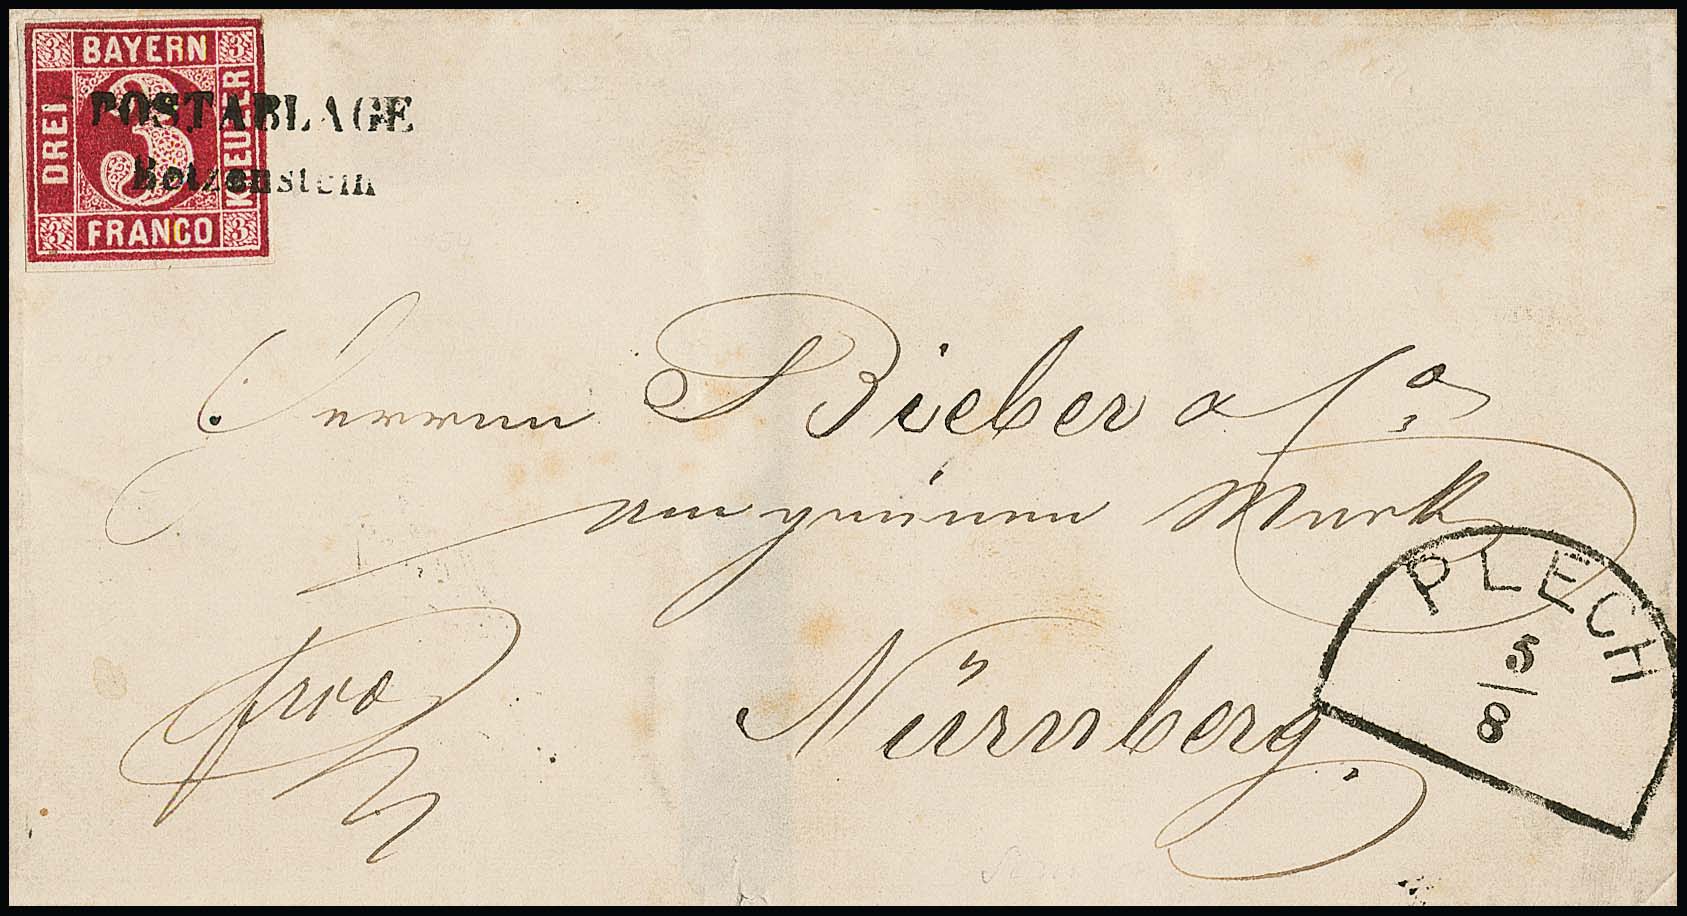 3 BAYERN 3
DREI 3 KREUZER
3 FRANCO 3
POSTABLAGE
Betzenstein
Herrn S Bieber & Co.
am grünen Markt
frco
Nürnberg.
PLECH
5/8